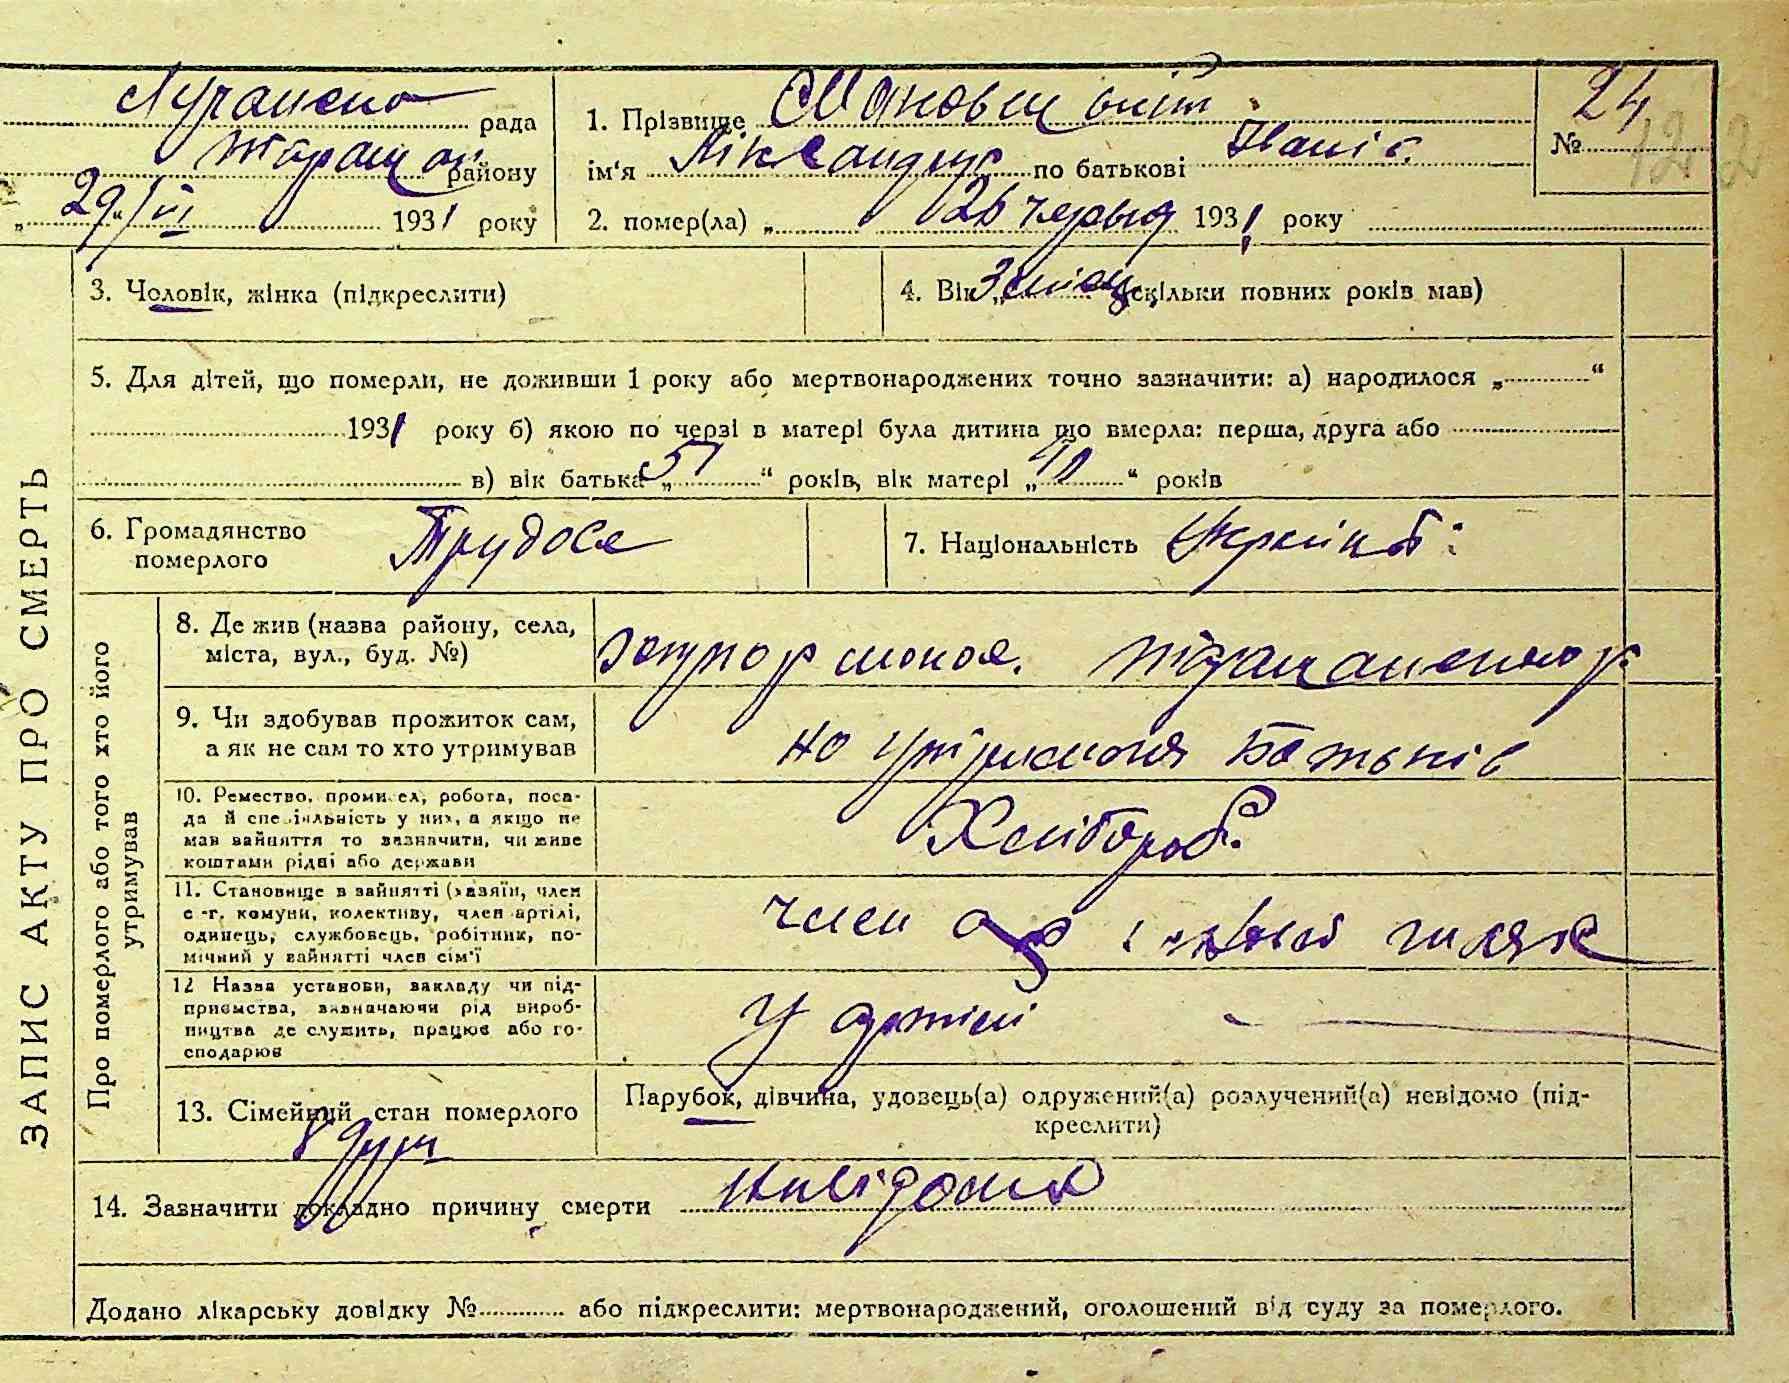 рада
1. Прізвище
24
Таращан району
ім'я по батькові
№
122
„29“/VI 1931 року
2. помер(ла) „ 26 червня 1931 року
3. Чоловік, жінка (підкреслити)
4. Вік „3 місяц. (скільки повних років мав)
5. Для дітей, що померли, не доживши 1 року або мертвонароджених точно зазначити: а) народилося „ “
1931 року б) якою по черзі в матері була дитина що вмерла: перша, друга або
в) вік батька „51“ років, вік матері „40“ років
6. Громадянство померлого
7. Національність
8. Де жив (назва району, села, міста, вул., буд. №)
хутор
9. Чи здобував прожиток сам, а як не сам то хто утримував
на утріманя батьків
10. Ремество, промисел, робота, посада й спеціяльність у них, а якщо не мав зайняття то зазначити, чи живе коштами рідні або держави
Хлібороб.
11. Становище в зайнятті (хазяїн, член с.-г. комуни, колективу, член артілі, одинець, службовець, робітник, помічний у зайнятті член сім'ї
член
12 Назва установи, закладу чи підприємства, зазначаючи рід виробництва де служить, працює або господарює
У артілі
13. Сімейний стан померлого
Парубок, дівчина, удовець(а) одружений(а) розлучений(а) невідомо (підкреслити)
14. Зазначити докладно причину смерти
невідома
Додано лікарську довідку № або підкреслити: мертвонароджений, оголошений від суду за померлого.
ЗАПИС АКТУ ПРО СМЕРТЬ
Про померлого або того хто його утримував